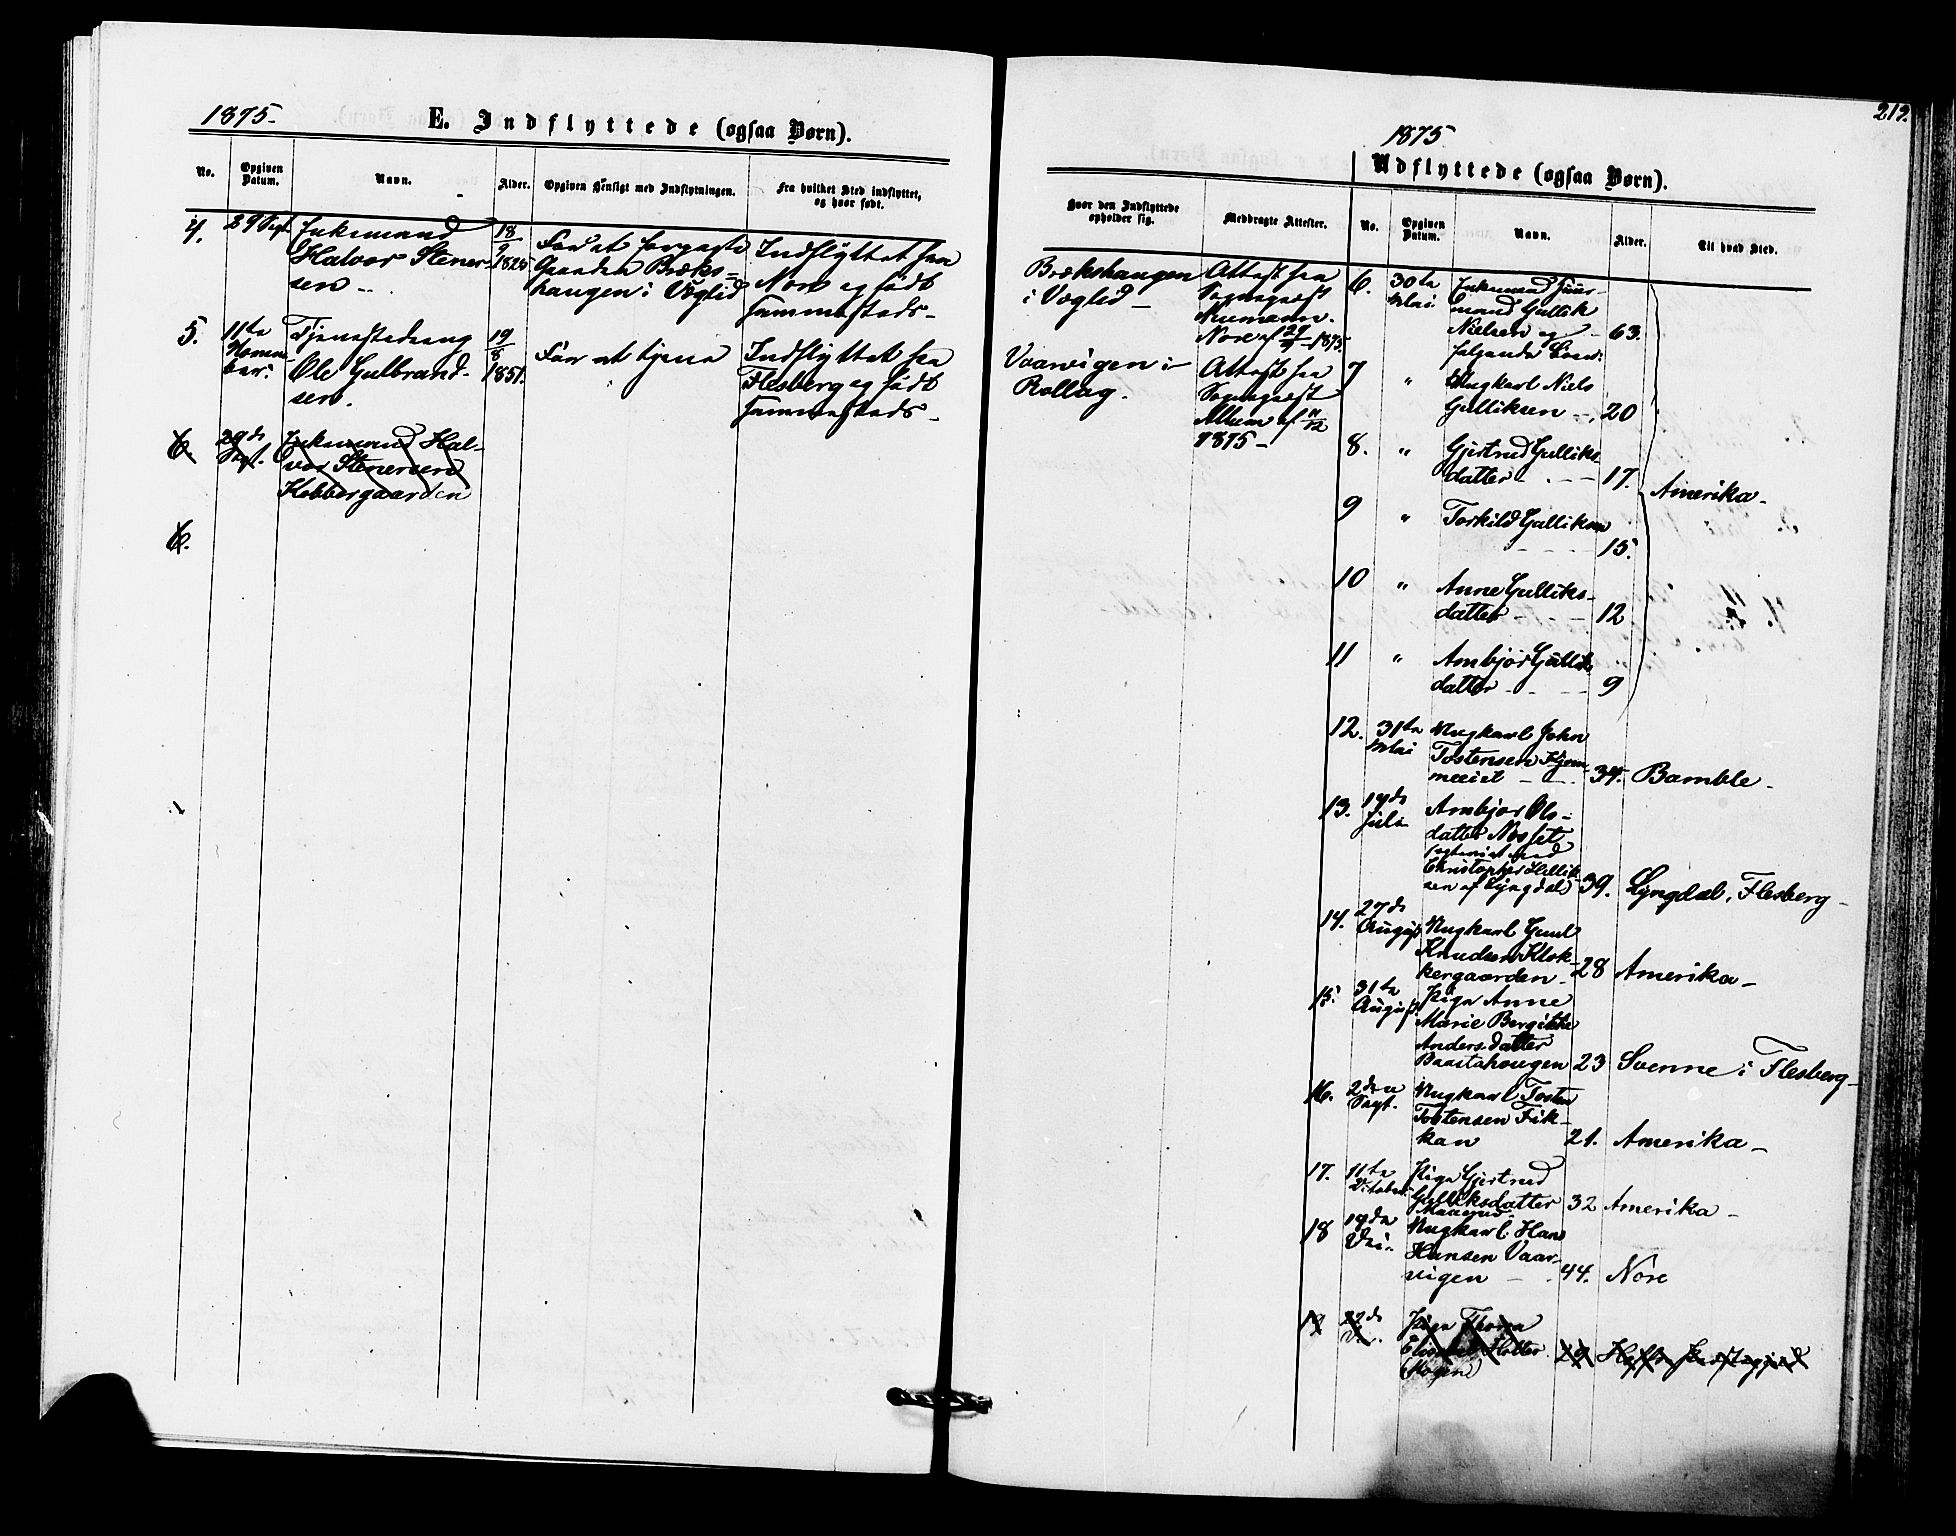 1875-
E. Indflyttede (ogsaa Børn).
No.
Opgiven Datum.
Navn.
Alder.
Opgiven Hensigt med Indflytningen.
Fra hvilket Sted indflyttet, og hvor født.
4.
29 Sept
Enkemand
Halvor Stener-
sen -
18/9 1825
For at forpagte
Gaarden Bræks-
haugen i Voglid
Indflyttet fra
Nore og født
sammesteds -
5.
11te
Novem-
ber.
Tjenestedreng
Ole Gulbrand-
sen.
19/8 1851.
For at tjene
Indflyttet fra
Flesberg og født
sammesteds -
6.
29de
Sept.
Enkemand Hal-
vor Stenersen
Kobbergaarden
6.
219.
1875
Udflyttede (ogsaa Børn).
Hvor den Indflyttede opholder sig.
Medbragte Attester.
No.
Opgiven Datum.
Navn.
Alder.
Til hvad Sted.
Brækshaugen
i Voglid -
Attest fra
Sognepræst
Neumann.
Nore af 29/9 1875.
Vaarvigen i
Rollag.
Attest fra
Sognepræst
Album af 11/12
1875 -
6.
30te
Mai
Enkemand
mand Gullik
Nielsen og
følgende Børn:
63.
7
"
Ungkarl Niels
Gulliksen -
20
8.
"
Gjertrud Gulliks-
datter -
17.
Amerika -
9
"
Torkild Gulliksen
15.
10
"
Anne Gulliks-
datter -
12
11
"
Ambjør Gulliks
datter -
9
12.
31te
Mai
Ungkarl John
Tostensen
34.
Bamble -
13.
14de
Juli
Ambjør Ols-
datter
med
Christopher
sen af Lyngdal)
39.
Lyngdal, Flesberg -
14.
27de
August
Ungkarl
Knudsen Klok-
kergaarden -
28
Amerika -
15.
31te
August
Pige Anne
Marie Bergitte
Andersdatter
Baastahougen
23
Svenne i Flesberg -
16.
2den
Sept.
Ungkarl Tosten
Tostensen Fik-
kan
21.
Amerika -
17.
11te
October
Pige Gjertrud
Gulliksdatter
32
Amerika -
18
19de
Ungkarl Hans
Hansen Vaar-
vigen -
44.
Nore
19
22de
Pige